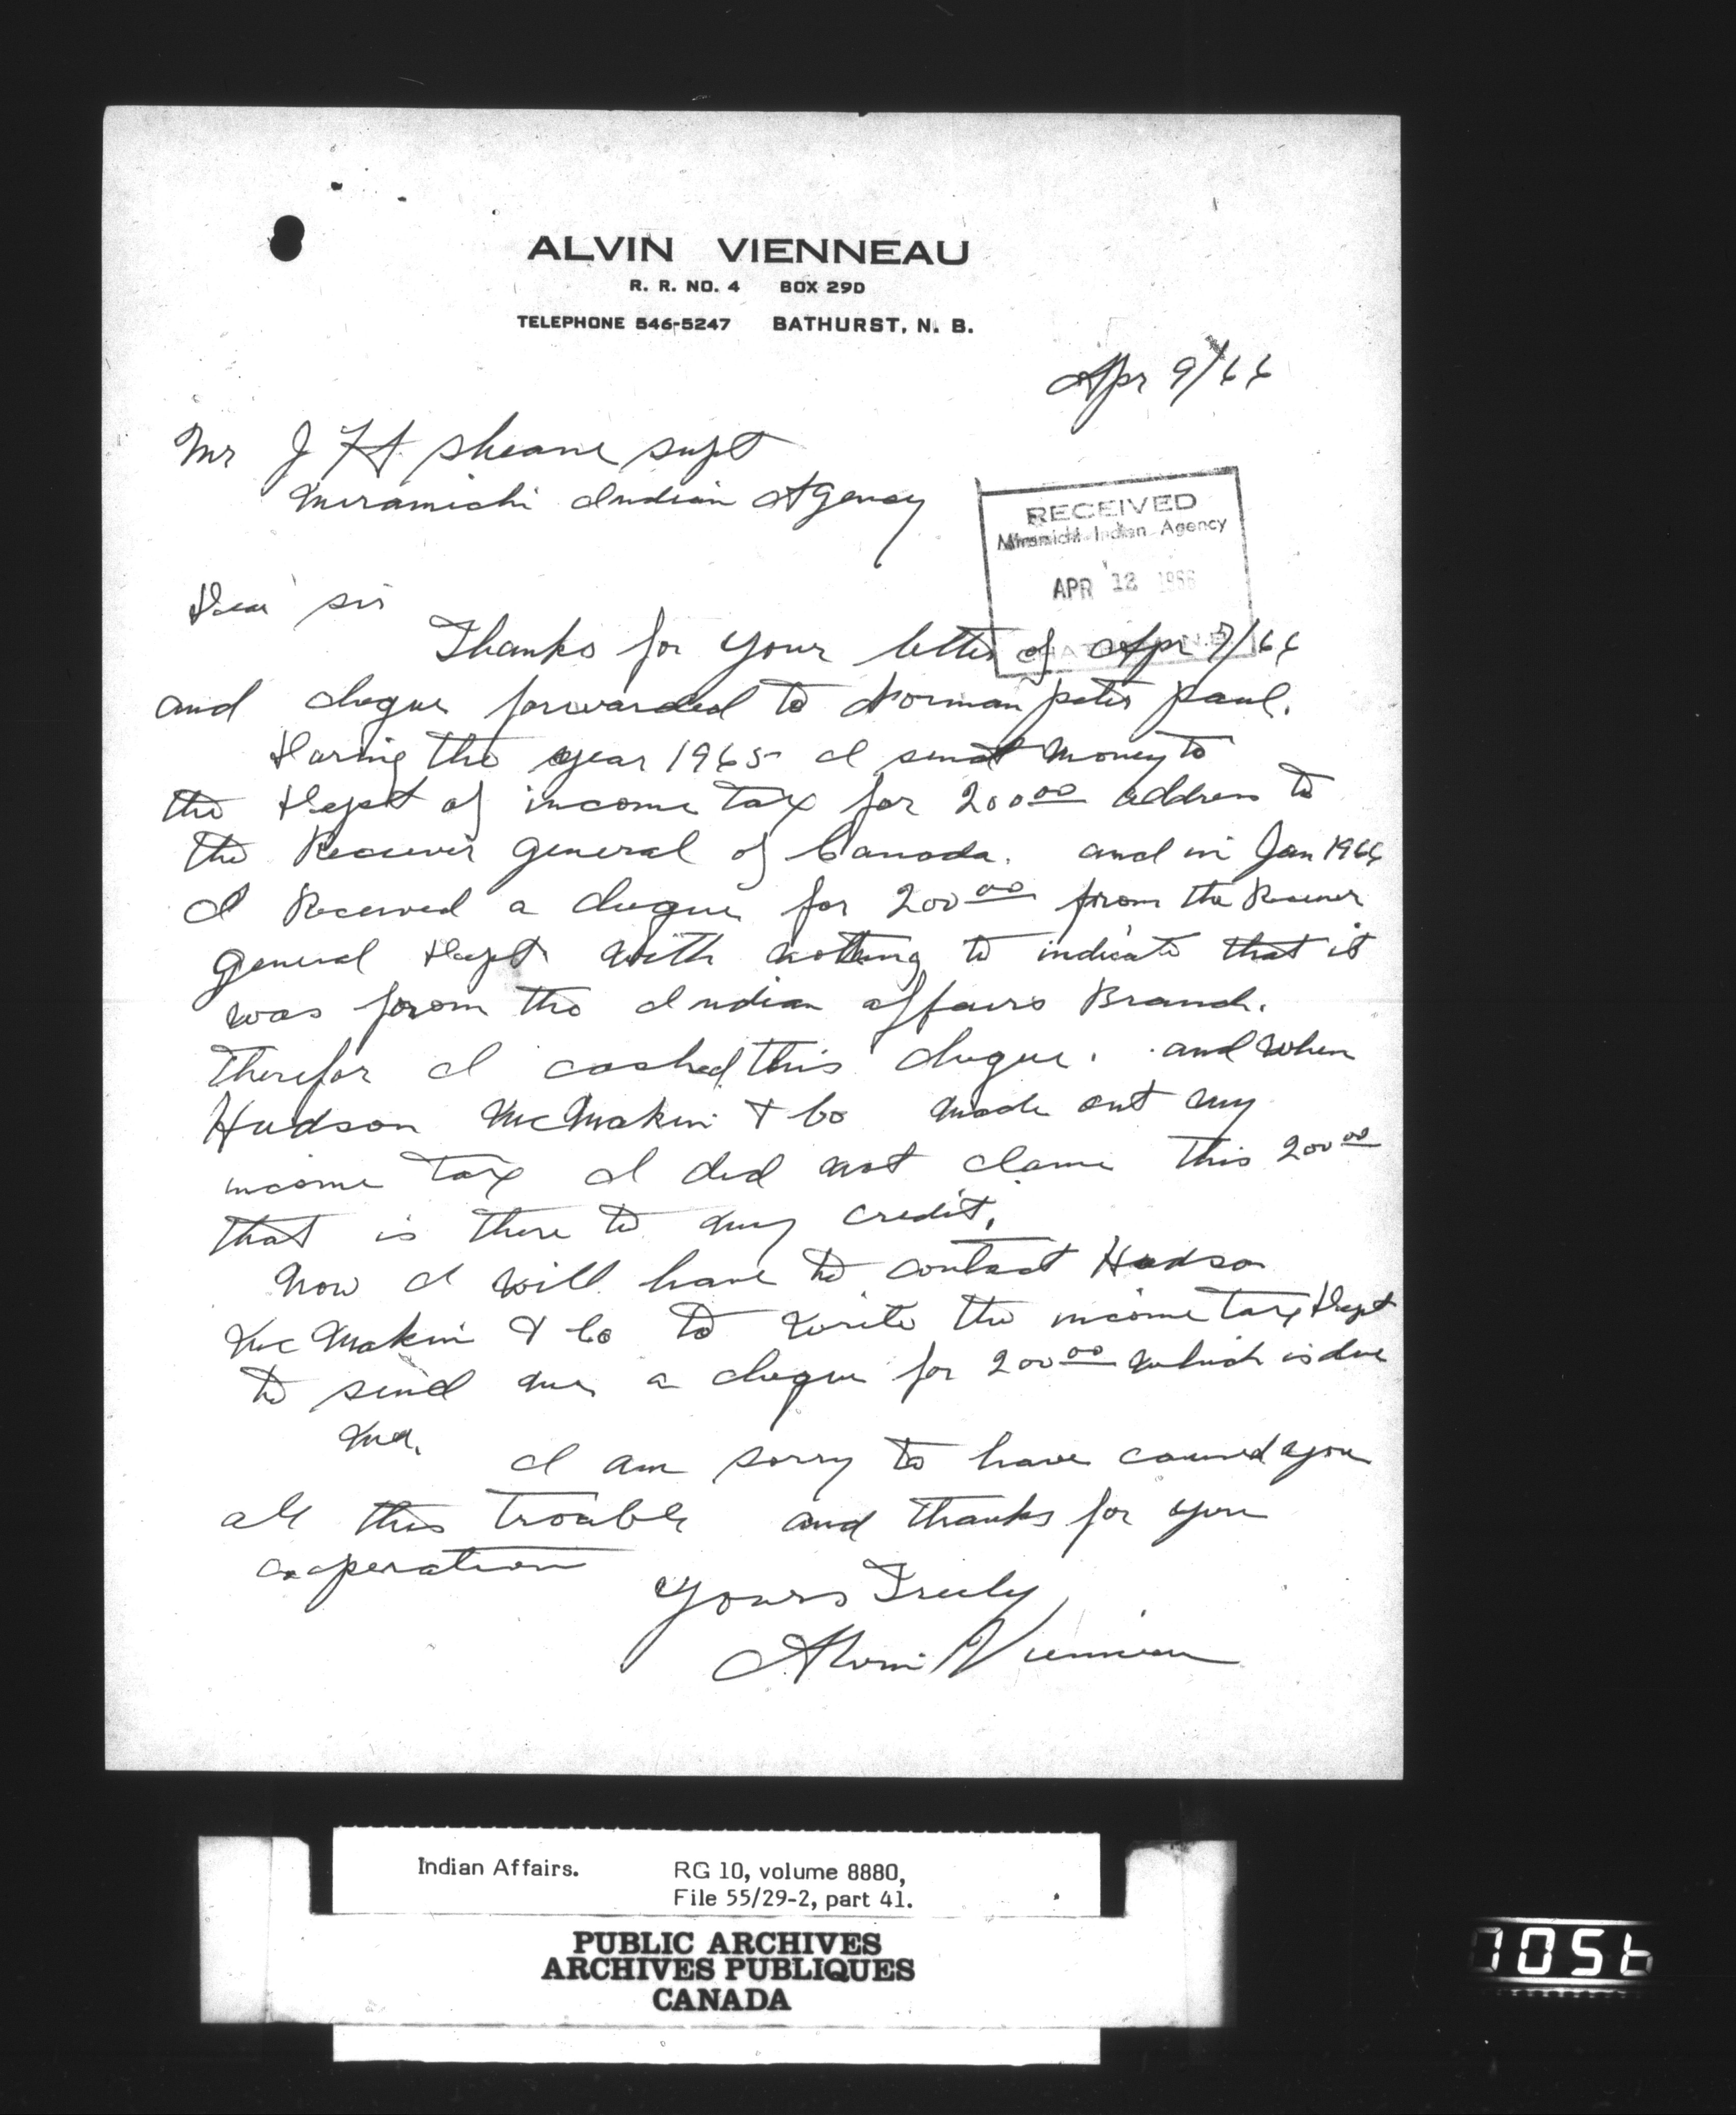 ALVIN VIENNEAU
R. R. NO. 4 BOX 29D
TELEPHONE 546-5247 BATHURST, N. B.
Apr 9/66
Mr J H Sheane supt
Miramichi Indian Agency
RECEIVED
Miramichi Indian Agency
APR 12 1966
CHATHAM N.B.
Dear sir
Thanks for your letter of Apr 7/66
and cheque forwarded to Norman Peter Paul.
During the year 1965 I send money to
the Dept of income tax for 200 00 address to
the Receiver general of Canada. and in Jan 1966
I Received a cheque for 200 00 from the Receiver
general Dept. with nothing to indicate that it
was from the Indian affairs Branch.
Therefor I cashed this cheque. and when
Hudson McMakin & Co made out my
income tax I did not clame this 200 00
that is there to my credit.
Now I will have to contact Hudson
McMakin & Co to write the income tax Dept
to send me a cheque for 200 00 which is due
me.
I am sorry to have caused you
all this trouble and thanks for your
cooperation
Yours Truly
Alvin Vienneau
Indian Affairs. RG 10, volume 8880,
File 55/29-2, part 41.
PUBLIC ARCHIVES
ARCHIVES PUBLIQUES
CANADA